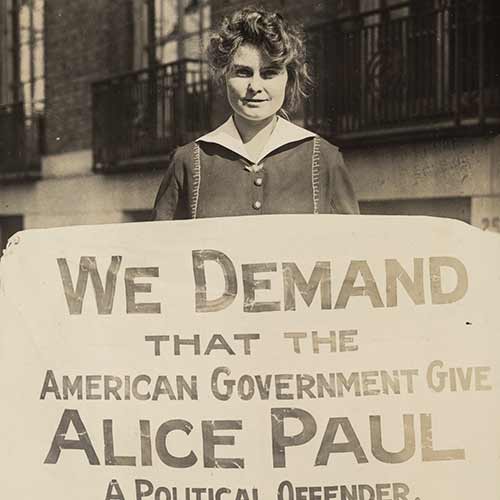 WE DEMAND
THAT THE
AMERICAN GOVERNMENT GIVE
ALICE PAUL
A POLITICAL OFFENDER.